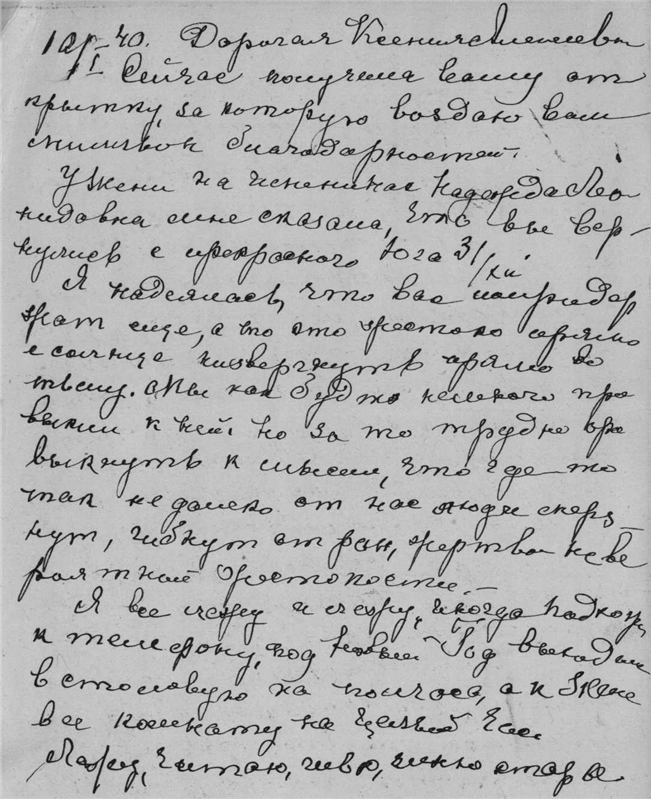 1 40. Дорогая Ксения Алексеевна
I Сейчас получила вашу от
крытку, за которую воздаю вам
миллион благодарностей.
У Жени на именинах Надежда Лео
нидовна мне сказала, что вы вер-
нулись с прекрасного Юга 31/XII
Я надеялась, что вас попридер
жат еще, а то это жестоко прямо
с солнца низвергнуть прямо во
тьму. Мы как будто немного при
выкли к ней. но за то трудно при
выкнуть к мысли, что где то
так не далеко от нас люди мерз
нут, гибнут от ран, жертвы неве
роятной жестокости.
Я все лежу и лежу, иногда подхожу
к телефону, под Новый Год выходила
в столовую на полчаса, а к Жене
в ее комнату на целый час.
Лежу, читаю, шью, чиню старье